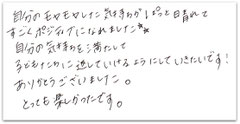 自分のモヤモヤした気持ちが ぱっと晴れて
すごくポジティブになれました**
自分の気持ちを満たして
子どもたちに返していけるようにしていきたいです!
ありがとうございました。
とっても楽しかったです。